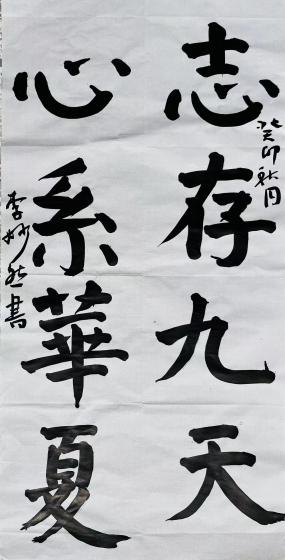 志存九天
癸卯秋月
心系華夏
李妙然書